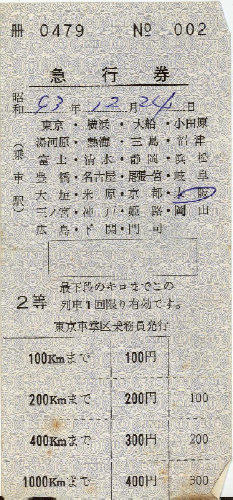 冊 0479 No 002
急行券
昭和 43年 12月 24日
(乗車駅)
東京・横浜・大船・小田原
湯河原・熱海・三島・沼津
富士・清水・静岡・浜松
豊橋・名古屋・尾張一宮・岐阜
大垣・米原・京都・大阪
三ノ宮・神戸・姫路・岡山
広島・下関・門司
2等 最下段のキロまでこの
列車1回限り有効です。
東京車掌区乗務員発行
100Kmまで 100円
200Kmまで 200円 100
400Kmまで 300円 200
1000Kmまで 400円 300